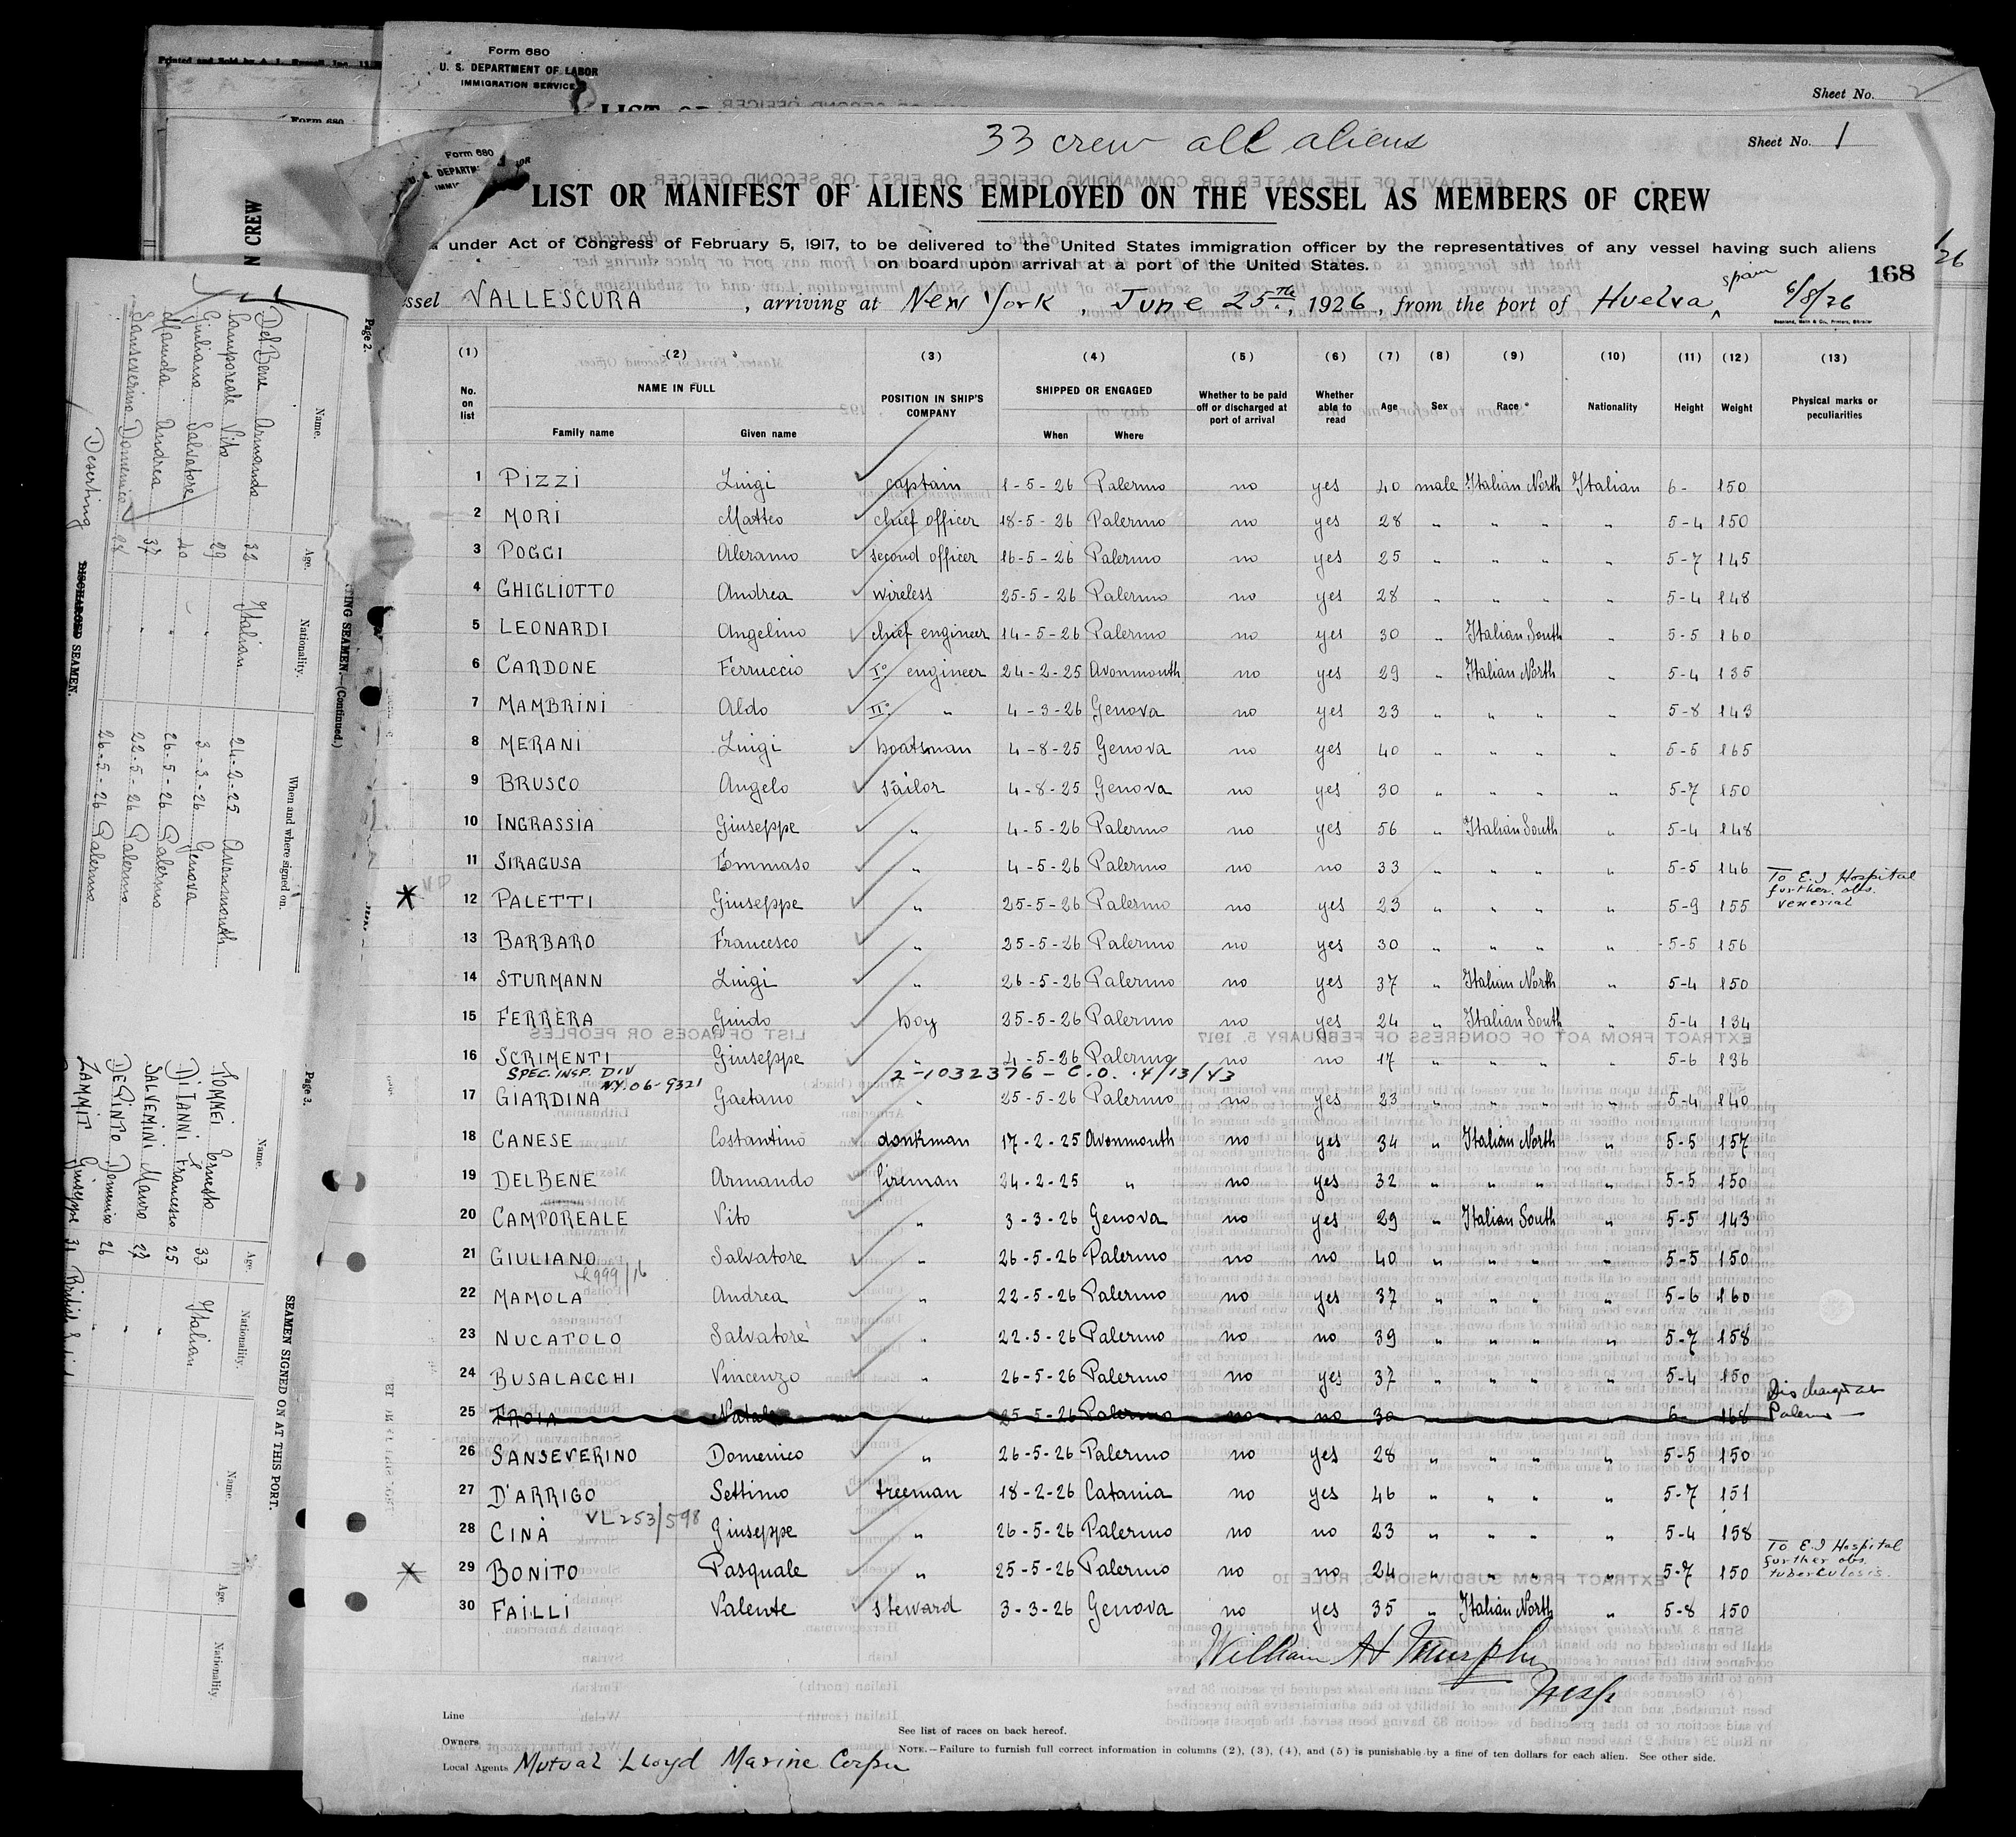 Printed and Sold by
Form 680
U. S. DEPARTMENT OF LABOR
IMMIGRATION SERVICE
Sheet No. 2
Form 680
33 crew all aliens
Sheet No. 1
Form 680
LIST OR MANIFEST OF ALIENS EMPLOYED ON THE VESSEL AS MEMBERS OF CREW
under Act of Congress of February 5, 1917, to be delivered to the United States immigration officer by the representatives of any vessel having such aliens
on board upon arrival at a port of the United States.
168
VALLESCURA, arriving at New York, June 25th, 1926, from the port of Huelva, Spain 6/8/26
(1) (2) (3) (4) (5) (6) (7) (8) (9) (10) (11) (12) (13)
No. on list NAME IN FULL POSITION IN SHIP'S COMPANY SHIPPED OR ENGAGED Whether to be paid off or discharged at port of arrival Whether able to read Age Sex Race * Nationality Height Weight Physical marks or peculiarities
Family name Given name When Where
1 PIZZI Luigi captain 1-5-26 Palermo no yes 40 male Italian North Italian 6- 150
2 MORI Matteo chief officer 18-5-26 Palermo no yes 28 " " " " 5-4 150
3 POGGI Aleramo second officer 16-5-26 Palermo no yes 25 " " " " 5-7 145
4 GHIGLIOTTO Andrea wireless 25-5-26 Palermo no yes 28 " " " " 5-4 148
5 LEONARDI Angelino chief engineer 14-5-26 Palermo no yes 30 " Italian South " 5-5 160
6 CARDONE Ferruccio I° engineer 24-2-25 Avonmouth no yes 29 " Italian North " 5-4 135
7 MAMBRINI Aldo II° " 4-3-26 Genova no yes 23 " " " " 5-8 143
8 MERANI Luigi boatsman 4-8-25 Genova no yes 40 " " " " 5-5 165
9 BRUSCO Angelo sailor 4-8-25 Genova no yes 30 " " " " 5-7 150
10 INGRASSIA Giuseppe " 4-5-26 Palermo no yes 56 " Italian South " 5-4 148
11 SIRAGUSA Tommaso " 4-5-26 Palermo no no 33 " " " " 5-5 146
12 PALETTI Giuseppe " 25-5-26 Palermo no yes 23 " " " " 5-9 155 To E.I Hospital further obs. venerial
13 BARBARO Francesco " 25-5-26 Palermo no yes 30 " " " " 5-5 156
14 STURMANN Luigi " 26-5-26 Palermo no yes 37 " Italian North " 5-4 150
15 FERRERA Guido boy 25-5-26 Palermo no yes 24 " Italian South " 5-4 134
16 SCRIMENTI Giuseppe " 4-5-26 Palermo no no 17 " " " " 5-6 136
SPEC. INSP. DIV N.Y. 06-9321 2-1032376 - C.O. 4/13/43
17 GIARDINA Gaetano " 25-5-26 Palermo no yes 23 " " " " 5-4 140
18 CANESE Costantino donkman 17-2-25 Avonmouth no yes 34 " Italian North " 5-5 157
19 DELBENE Armando fireman 24-2-25 " no yes 32 " " " " 5-5 150
20 CAMPOREALE Vito " 3-3-26 Genova no yes 29 " Italian South " 5-5 143
21 GIULIANO Salvatore " 26-5-26 Palermo no no 40 " " " " 5-5 150
22 MAMOLA Andrea " 22-5-26 Palermo no yes 37 " " " " 5-6 160
23 NUCATOLO Salvatore " 22-5-26 Palermo no no 39 " " " " 5-7 158
24 BUSALACCHI Vincenzo " 26-5-26 Palermo no yes 37 " " " " 5-4 150
25 FROIA Natale " 25-5-26 Palermo no no 30 " " " " 6- 168 Discharged at Palermo
26 SANSEVERINO Domenico " 26-5-26 Palermo no yes 28 " " " " 5-5 150
27 D'ARRIGO Settimo treeman 18-2-26 Catania no yes 46 " " " " 5-7 151
VL 253/598
28 CINÀ Giuseppe " 26-5-26 Palermo no no 23 " " " " 5-4 158
29 BONITO Pasquale " 25-5-26 Palermo no no 24 " " " " 5-7 150 To E.I Hospital further obs. tuberculosis.
30 FAILLI Valente steward 3-3-26 Genova no yes 35 " Italian North " 5-8 150
William H Murphy
Insp
Line
Owners
Local Agents Mutual Lloyd Marine Corpn
See list of races on back hereof.
NOTE.—Failure to furnish full correct information in columns (2), (3), (4), and (5) is punishable by a fine of ten dollars for each alien. See other side.
Page 2.
TING SEAMEN.—(Continued.)
Name. Age. Nationality. When and where signed on.
Del Bene Armando 32 Italian 24-2-25 Avonmouth
Camporeale Vito 29 " 3-3-26 Genova
Giuliano Salvatore 40 " 26-5-26 Palermo
Mamola Andrea 37 " 22-5-26 Palermo
Sanseverino Domenico 28 " 26-5-26 Palermo
Deserting
DISCHARGED SEAMEN.
Page 3.
SEAMEN SIGNED ON AT THIS PORT.
Name. Age. Nationality. Name. Age. Nationality
TOMNEI Ernesto 33 Italian
DI IANNI Francesco 25 "
SALVEMINI Mauro 27 "
DE PINTO Domenico 26 "
ZAMMIT Giuseppe 31